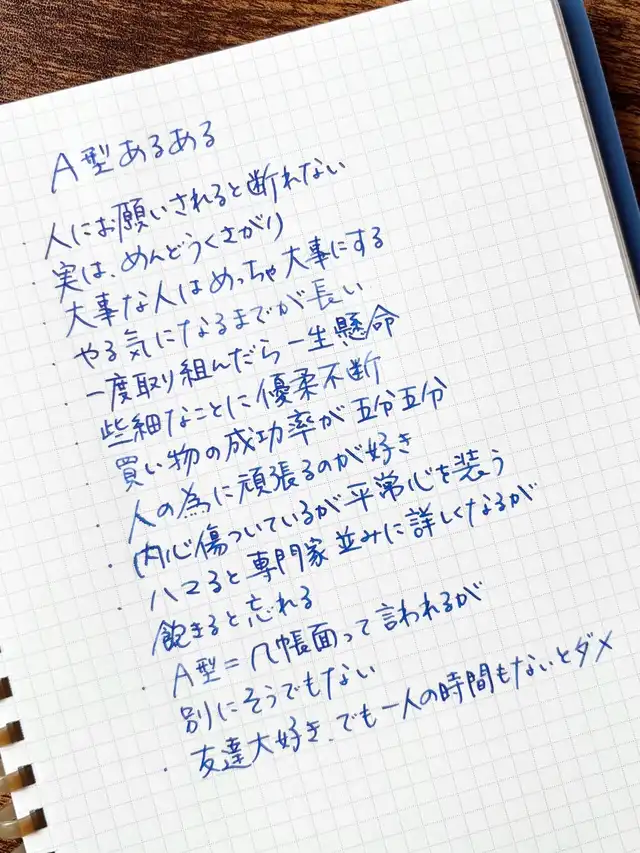 A型あるある
・人にお願いされると断れない
・実は、めんどうくさがり
・大事な人はめっちゃ大事にする
・やる気になるまでが長い
・一度取り組んだら一生懸命
・些細なことに優柔不断
・買い物の成功率が五分五分
・人の為に頑張るのが好き
・内心傷ついているが平常心を装う
・ハマると専門家並みに詳しくなるが
飽きると忘れる
・A型=几帳面って言われるが
別にそうでもない
・友達大好き、でも一人の時間もないとダメ